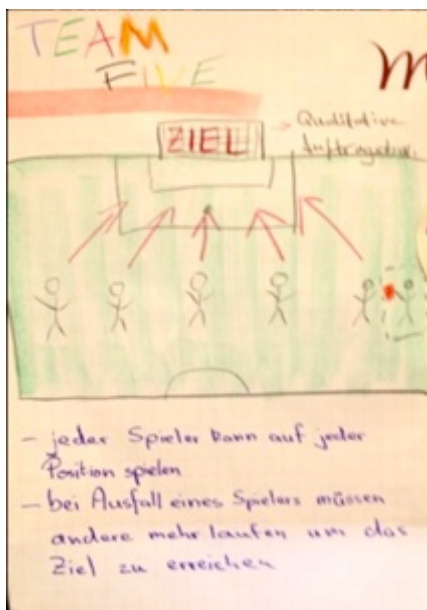 TEAM
FIVE
ZIEL
Qualitative
- jeder Spieler kann auf jeder
Position spielen
- bei Ausfall eines Spielers müssen
andere mehr laufen um das
Ziel zu erreichen